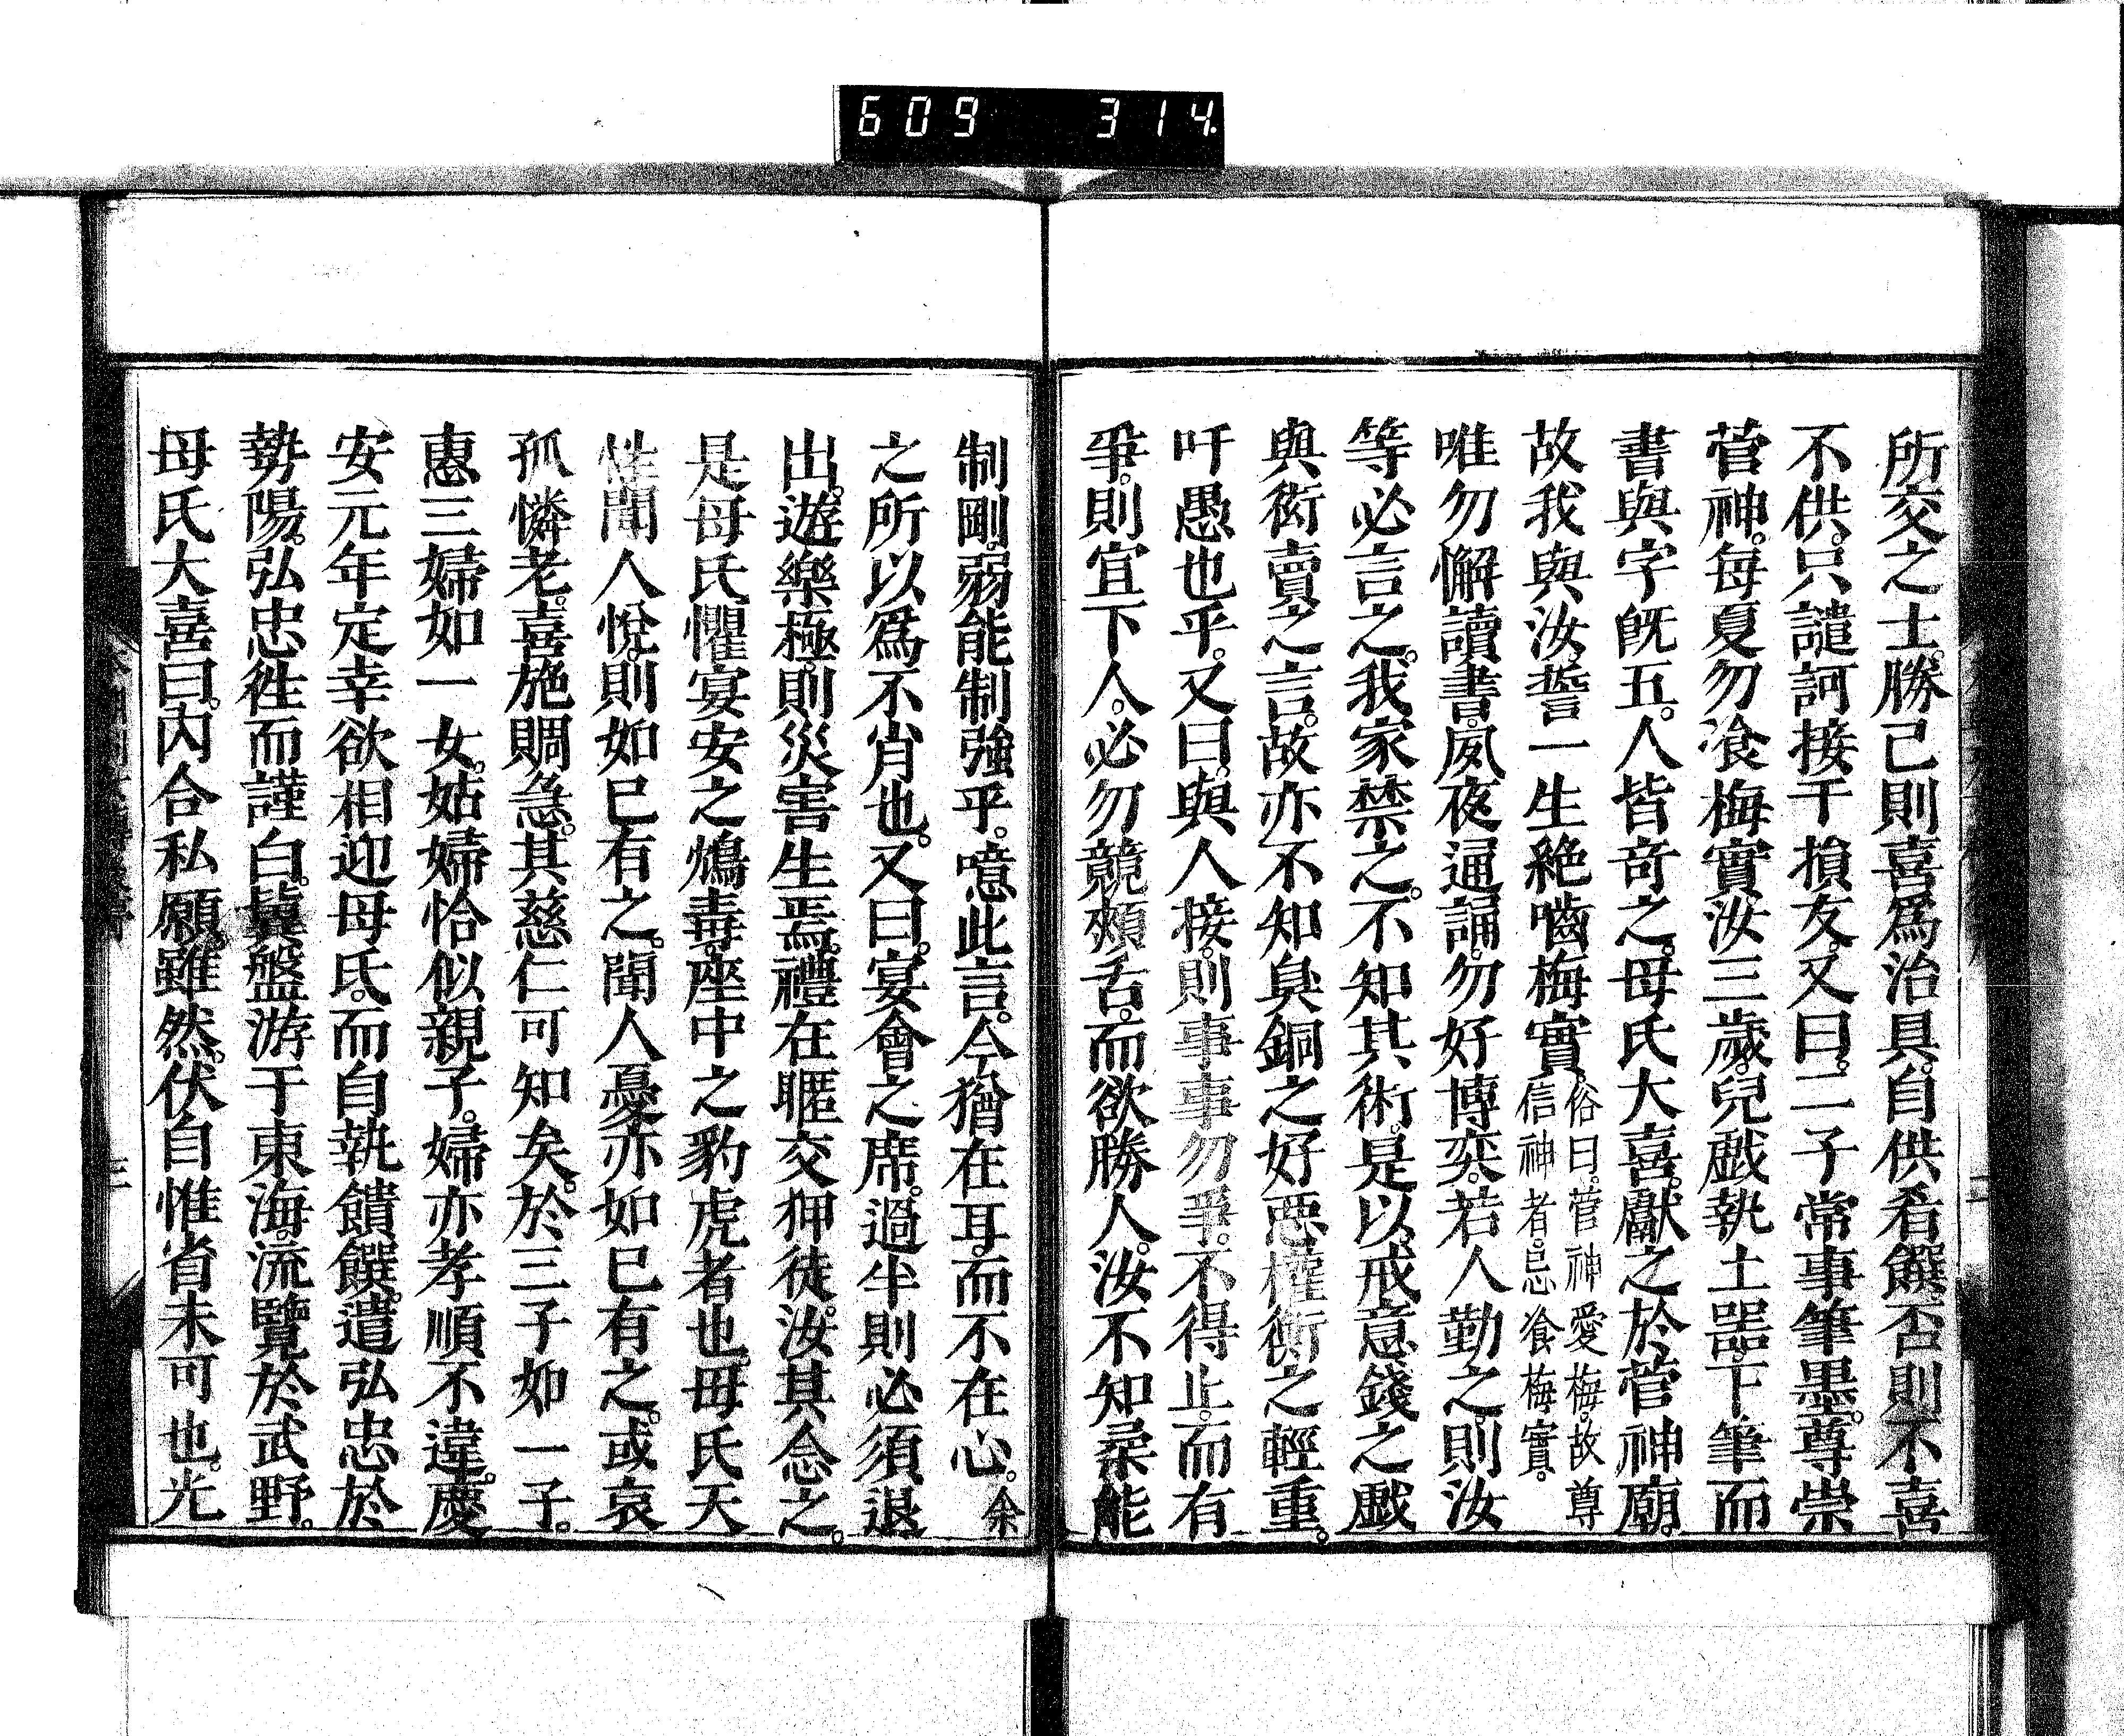 609 314
所交之士。勝己則喜爲治具。自供肴饌。否則不喜
不供。只譴訶接于損友。又曰。二子常事筆墨。尊崇
菅神。每夏勿飡梅實。汝三歲。兒戲執土器。下筆而
書與字旣五。人皆奇之。母氏大喜。獻之於菅神廟。
故我與汝。誓一生絶嚙梅實。俗曰。菅神愛梅。故尊
信神者。忌飡梅實。
唯勿懈讀書。夙夜通誦。勿好博奕。若人勤之。則汝
等必言之。我家禁之。不知其術。是以戒意錢之戲
與衒賣之言。故亦不知臭銅之好惡權衡之輕重。
吁愚也乎。又曰。與人接。則事事勿爭。不得止。而有
爭。則宜下人。必勿競頰舌。而欲勝人。汝不知柔能
制剛。弱能制強乎。噫此言。今猶在耳。而不在心。余
之所以爲不肖也。又曰。宴會之席。過半則必須退
出。遊樂極。則災害生焉。禮在暱交狎徒。汝其念之。
是母氏懼宴安之鴆毒。座中之豹虎者也。母氏天
性聞人悅。則如己有之。聞人憂亦如己有之。或哀
孤憐老。喜施賙急。其慈仁可知矣。於三子如一子。
惠三婦如一女。姑婦恰似親子。婦亦孝順不違。慶
安元年定幸欲相迎母氏。而自執饋饌。遣弘忠於
勢陽。弘忠徃而謹白。冀盤游于東海。流覽於武野。
母氏大喜曰。內合私願。雖然。伏自惟省未可也。光